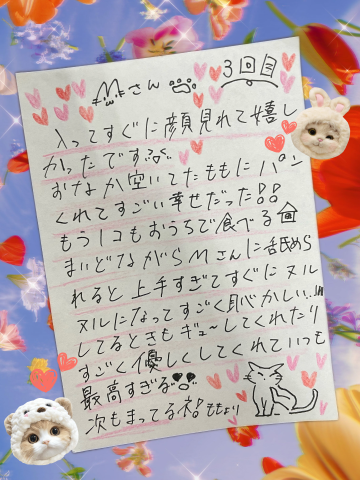 Mさん 3回目
入ってすぐに顔見れて嬉し
かったです
おなか空いてたももにパン
くれてすごい幸せだった!!
もう1コもおうちで食べる
まいどながらMさんに舐めら
れると上手すぎてすぐにヌル
ヌルになってすごく恥かしい...!!!
してるときもギューしてくれたり
すごく優しくしてくれていつも
最高すぎる
次もまってるネ! ももより